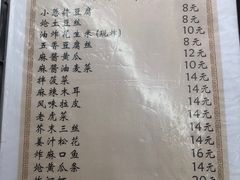 8元
小葱拌豆腐 8元
炝土豆丝 8元
油炸花生米(现炸) 10元
五香豆腐丝 8元
麻酱黄瓜 10元
麻酱油麦菜 12元
拌菠菜 14元
麻辣木耳 14元
风味拉皮 14元
老虎菜 14元
芥末三丝 14元
姜汁松花 14元
炸麻口鱼 16元
炝黄瓜条 14元
20元